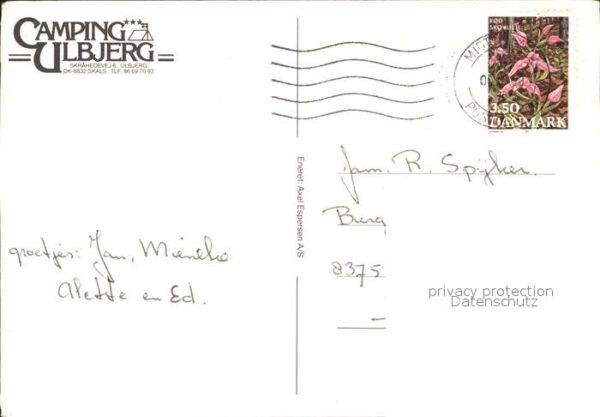 CAMPING
ULBJERG
SKRÅHEDEVEJ 6 . ULBJERG
DK-8832 SKALS . TLF. 86 69 70 93
RØD
SKOVLILJE
3.50
DANMARK
MIDT
POST
Eneret: Axel Espersen A/S
Fam. R. Spijker.
Burg
8375
privacy protection
Datenschutz
groetjes: Jan, Mieneke
Alette en Ed.